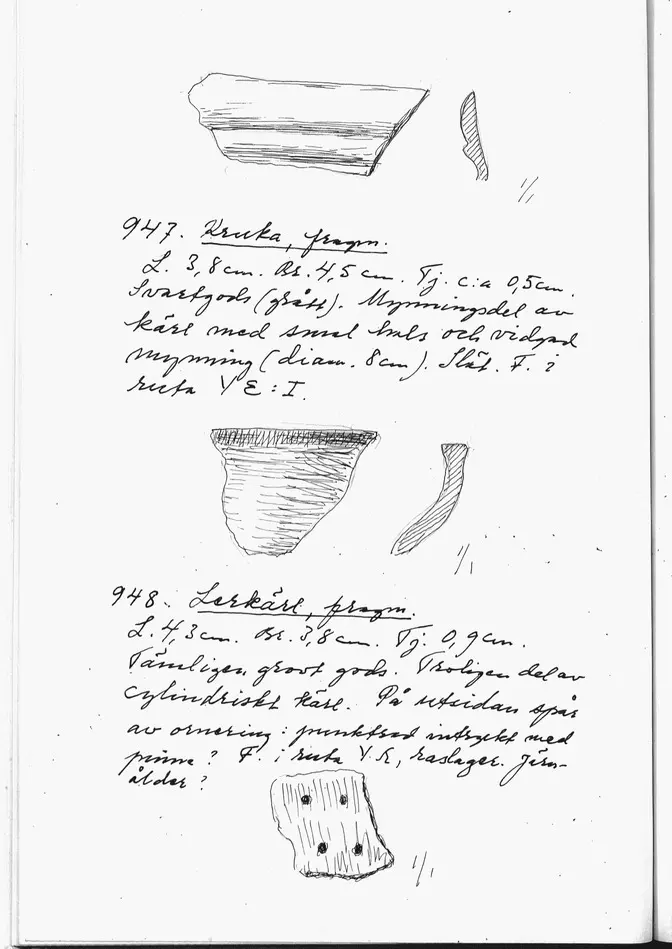 1/1
947. Kruka, fragm.
L. 3,8 cm. Br. 4,5 cm. Tj. c:a 0,5 cm.
Svartgods (grått). Mynningsdel av
kärl med smal hals och vidgad
mynning (diam. 8 cm). Slät. F. i
ruta Y E : I.
1/1
948. Lerkärl, fragm.
L. 4,3 cm. Br. 3,8 cm. Tj. 0,9 cm.
Tämligen grovt gods. Troligen del av
cylindriskt kärl. På utsidan spår
av ornering : punktrad intryckt med
pinne ? F. i ruta Y. , raslager. Järn-
ålder ?
1/1